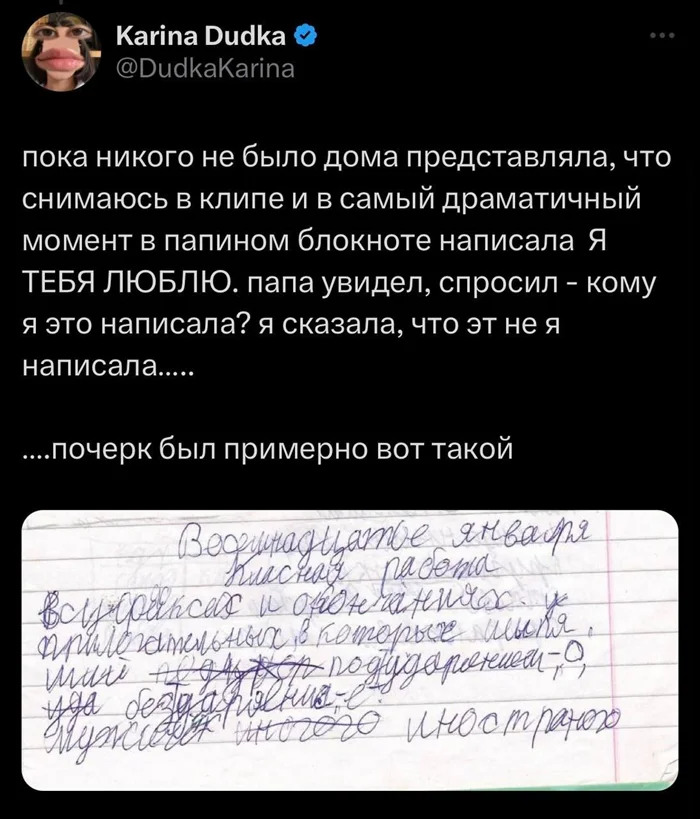 Karina Dudka
@DudkaKarina
пока никого не было дома представляла, что
снимаюсь в клипе и в самый драматичный
момент в папином блокноте написала Я
ТЕБЯ ЛЮБЛЮ. папа увидел, спросил - кому
я это написала? я сказала, что эт не я
написала.....
....почерк был примерно вот такой
Восемнадцатое января
Класная работа
В суффиксах и окончаниях
прилагательных в которых
под ударением -О,
без
иностраного